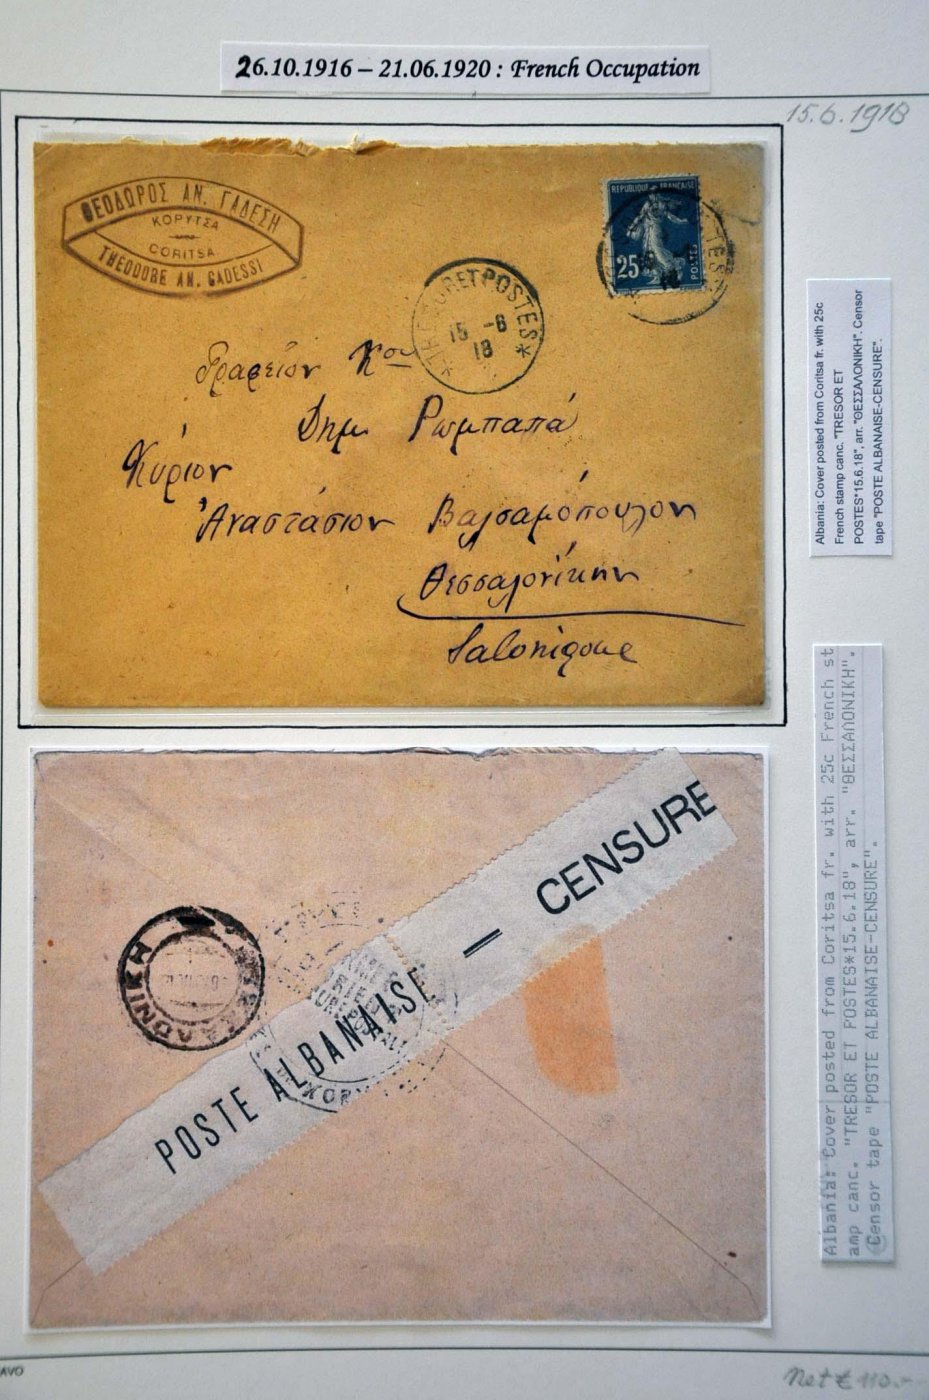 26.10.1916 – 21.06.1920 : French Occupation
15.6.1918
ΘΕΟΔΩΡΟΣ ΑΝ. ΓΑΔΕΣΗ
ΚΟΡΥΤΣΑ
CORITSA
THEODORE AN. GADESSI
REPUBLIQUE FRANÇAISE
25
POSTES
*TRESOR ET POSTES*
15 -6
18
Γραφεῖον Κου
Δημ Ρωμπαπά
Κύριον
Ἀναστάσιον Βαλσαμόπουλον
Θεσσαλονίκην
Salonique
Albania: Cover posted from Coritsa fr. with 25c
French stamp canc. "TRESOR ET
POSTES*15.6.18", arr. "ΘΕΣΣΑΛΟΝΙΚΗ". Censor
tape "POSTE ALBANAISE-CENSURE".
POSTE ALBANAISE — CENSURE
Albania: Cover posted from Coritsa fr. with 25c French st
amp canc. "TRESOR ET POSTES*15.6.18", arr. "ΘΕΣΣΑΛΟΝΙΚΗ".
Censor tape "POSTE ALBANAISE-CENSURE".
AVO
Net € 110.-